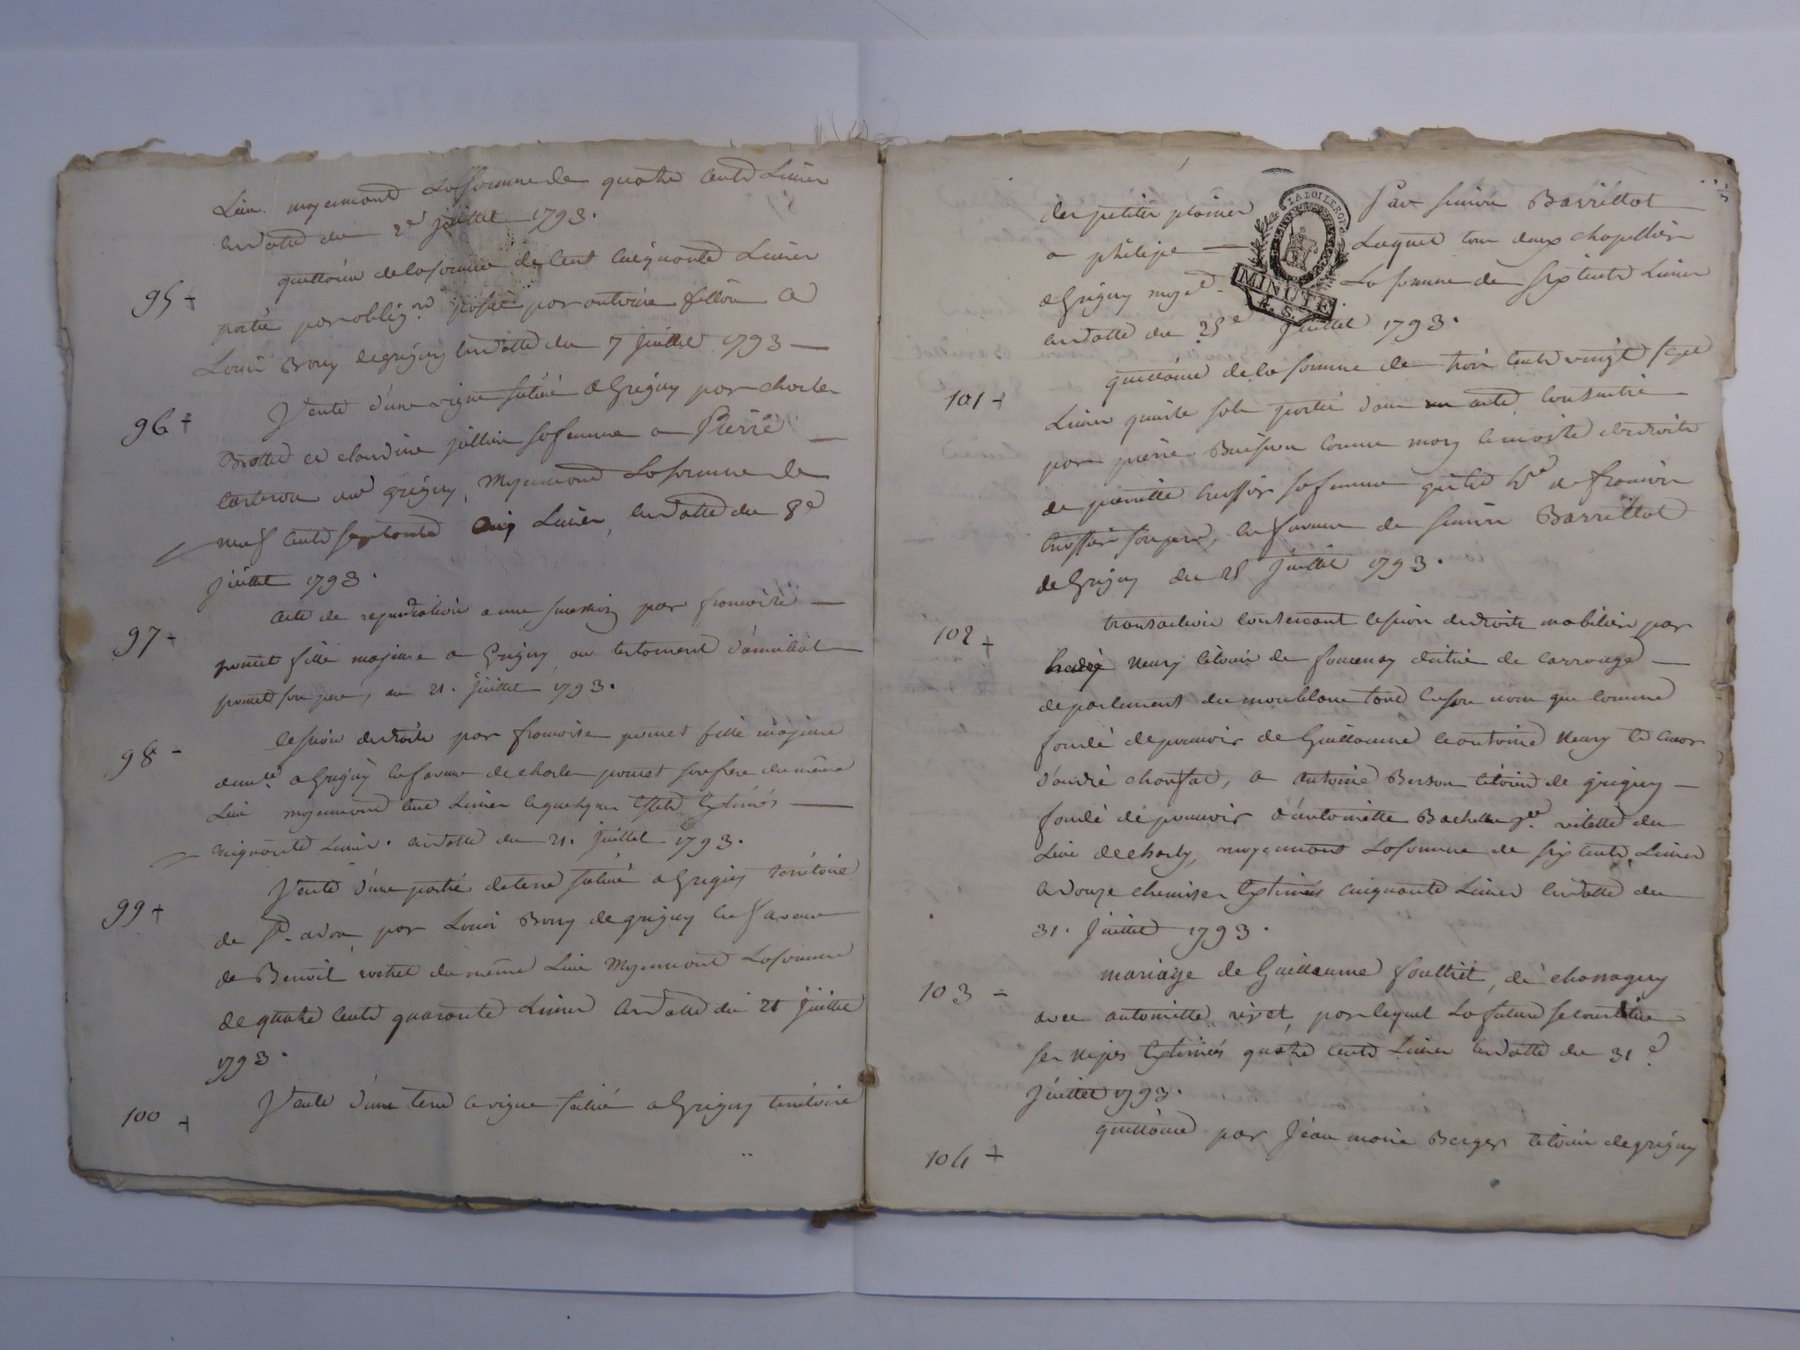 Lieu. moyennant La somme de quatre cents Livres
en datte du 2e juillet 1793.
95 + quittance de la somme de cent cinquante Livres
portée par oblig.on passée par antoine fillion a
Louis Bory de grigny en datte du 7 juillet 1793 —
96 + Vente d'une vigne située a Grigny par charles
Brottet et claudine jullien sa femme a Pierre —
au grigny, Moyennant La somme de
neuf cents septante cinq Livres, en datte du 8e
juillet 1793.
97 + acte de repudiation a une succession par francoise —
poncet fille majeure a Grigny, au testament d'annibal —
poncet son pere, du 21. juillet 1793.
98 - cession de droits par francoise poncet fille majeure
a Grigny en faveur de charles poncet son frere du même
Lieu moyennant Livres et quelques effets Estimés —
cinquante Livres. en datte du 21. juillet 1793.
99 + Vente d'une partie de terre située a Grigny territoire
de St. par Louis Bory de grigny en faveur
de Benoit du même Lieu Moyennant La somme
de quatre cents quarante Livres en datte du 21 juillet
1793.
100 + Vente d'une terre et vigne située a Grigny territoire
LA LOI LE ROI
MINUTE
4. S.
des petites plaines Par Barrillot
a philipe — Laquet tous deux chapelliers
a Grigny moy.t La somme de six cents Livres
en datte du 25e juillet 1793.
101 + quittance de la somme de trois cents vingt sept
Livres portée dans un acte consenti
par pierre Buisson comme mary et maitre des droits
de pierrette sa femme de francois
son pere, en faveur de Barrillot
de Grigny du 25 juillet 1793.
102 + transaction contenant cession de droits mobiliers par
Neury citoien de de carrouge —
departement du montblanc tant en son nom que comme
fondé de pouvoir de Guillaume et antoine Neury et
d'andré a antoine Berson citoien de grigny —
fondé de pouvoir d'antoinette Bachelu du
Lieu de charly, moyennant La somme de six cents Livres
et douze chemises Estimées cinquante Livres en datte du
31. juillet 1793.
103 - mariage de Guillaume fouilliet, de chassagny
avec antoinette rivet, par lequel La future se constitue
ses nipes Estimées quatre cents Livres en datte du 31e
juillet 1793.
104 + quittance par jean marie Berger citoien de grigny